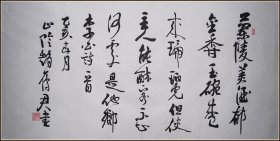 蘭陵美酒郁
金香玉碗盛
來琥珀光但使
主人能醉客不知
何處是他鄉
李白詩一首
月
山陰